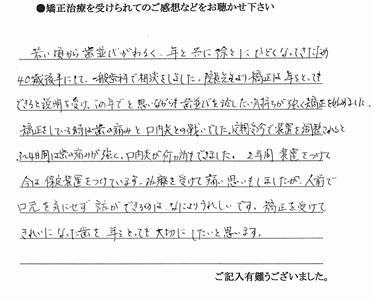 ●矯正治療を受けられてのご感想などをお聴かせ下さい
若い頃から歯並びがわるく、年と共に徐々にひどくなってきたため
40歳後半にきて、一般歯科で相談をしました。院長先生より矯正は年をとっても
できると説明を受け、この年でと思いながら歯並びを治したい気持ちが強く矯正を始めました。
矯正をしている時は歯の痛みと口内炎との戦いでした。定期的で装置を調整されると
3〜4日間は歯の痛みが強く、口内炎が何ヶ所もできました。2年間装置をつけて
今は保定装置をつけています。治療を受けて痛い思いもしましたが、人前で
口元を気にせず話ができるのは、なによりうれしいです。矯正を受けて
きれいになった歯を年をとっても大切にしたいと思います。
ご記入有難うございました。